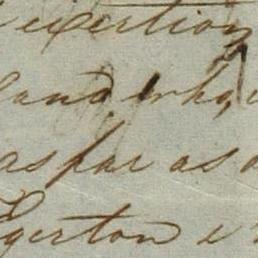 exertion
land who,
as far as
Egerton